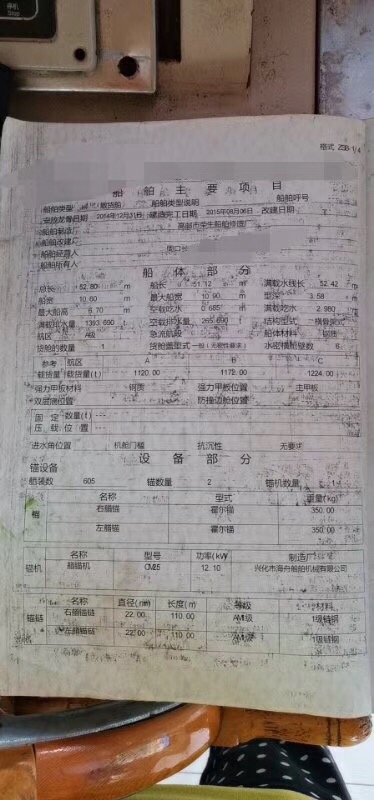 停机
Stop
格式 ZSB-1/4
船 舶 主 要 项 目
船舶类型 散货船 船舶类型说明 --- 船舶呼号
安放龙骨日期 2014年12月31日 建造完工日期 2015年08月06日 改建日期
船舶制造厂 高邮市荣生船舶修造厂
船舶改建厂
船舶经营人 周口长
船舶所有人
船 体 部 分
总长 52.80 m 船长 51.12 m 满载水线长 52.42 m
船宽 10.60 m 最大船宽 10.90 m 型深 3.58 m
最大船高 6.70 m 空载吃水 0.685 m 满载吃水 2.980
满载排水量 1393.690 t 空载排水量 265.690 t 结构型式
航区 A级 急流航段 --- 船体材料 钢质
货舱的数量 1 货舱盖型式 水密横舱壁数 6
参考 航区 A B C
载货量 载货量(t) 1120.00 1172.90 1224.00
强力甲板材料 钢质 强力甲板位置 主甲板
双层底位置 --- 防撞边舱位置 ---
固 定 数量(t) ---
压 载 位 置 ---
进水角位置 机舱门槛 抗沉性 无要求
设 备 部 分
锚设备
舾装数 605 锚数量 2 锚机数量 1
名称 型式 重量(kg)
锚 右艏锚 霍尔锚 350.00
左艏锚 霍尔锚 350.00
名称 型号 功率(kW) 制造厂
锚机 艏锚机 12.10 兴化市海舟船舶机械有限公司
名称 直径(mm) 长度(m) 等级 材料
锚链 右艏锚链 22.00 110.00 AM1级 1级链钢
左艏锚链 22.00 110.00 AM1级 1级链钢